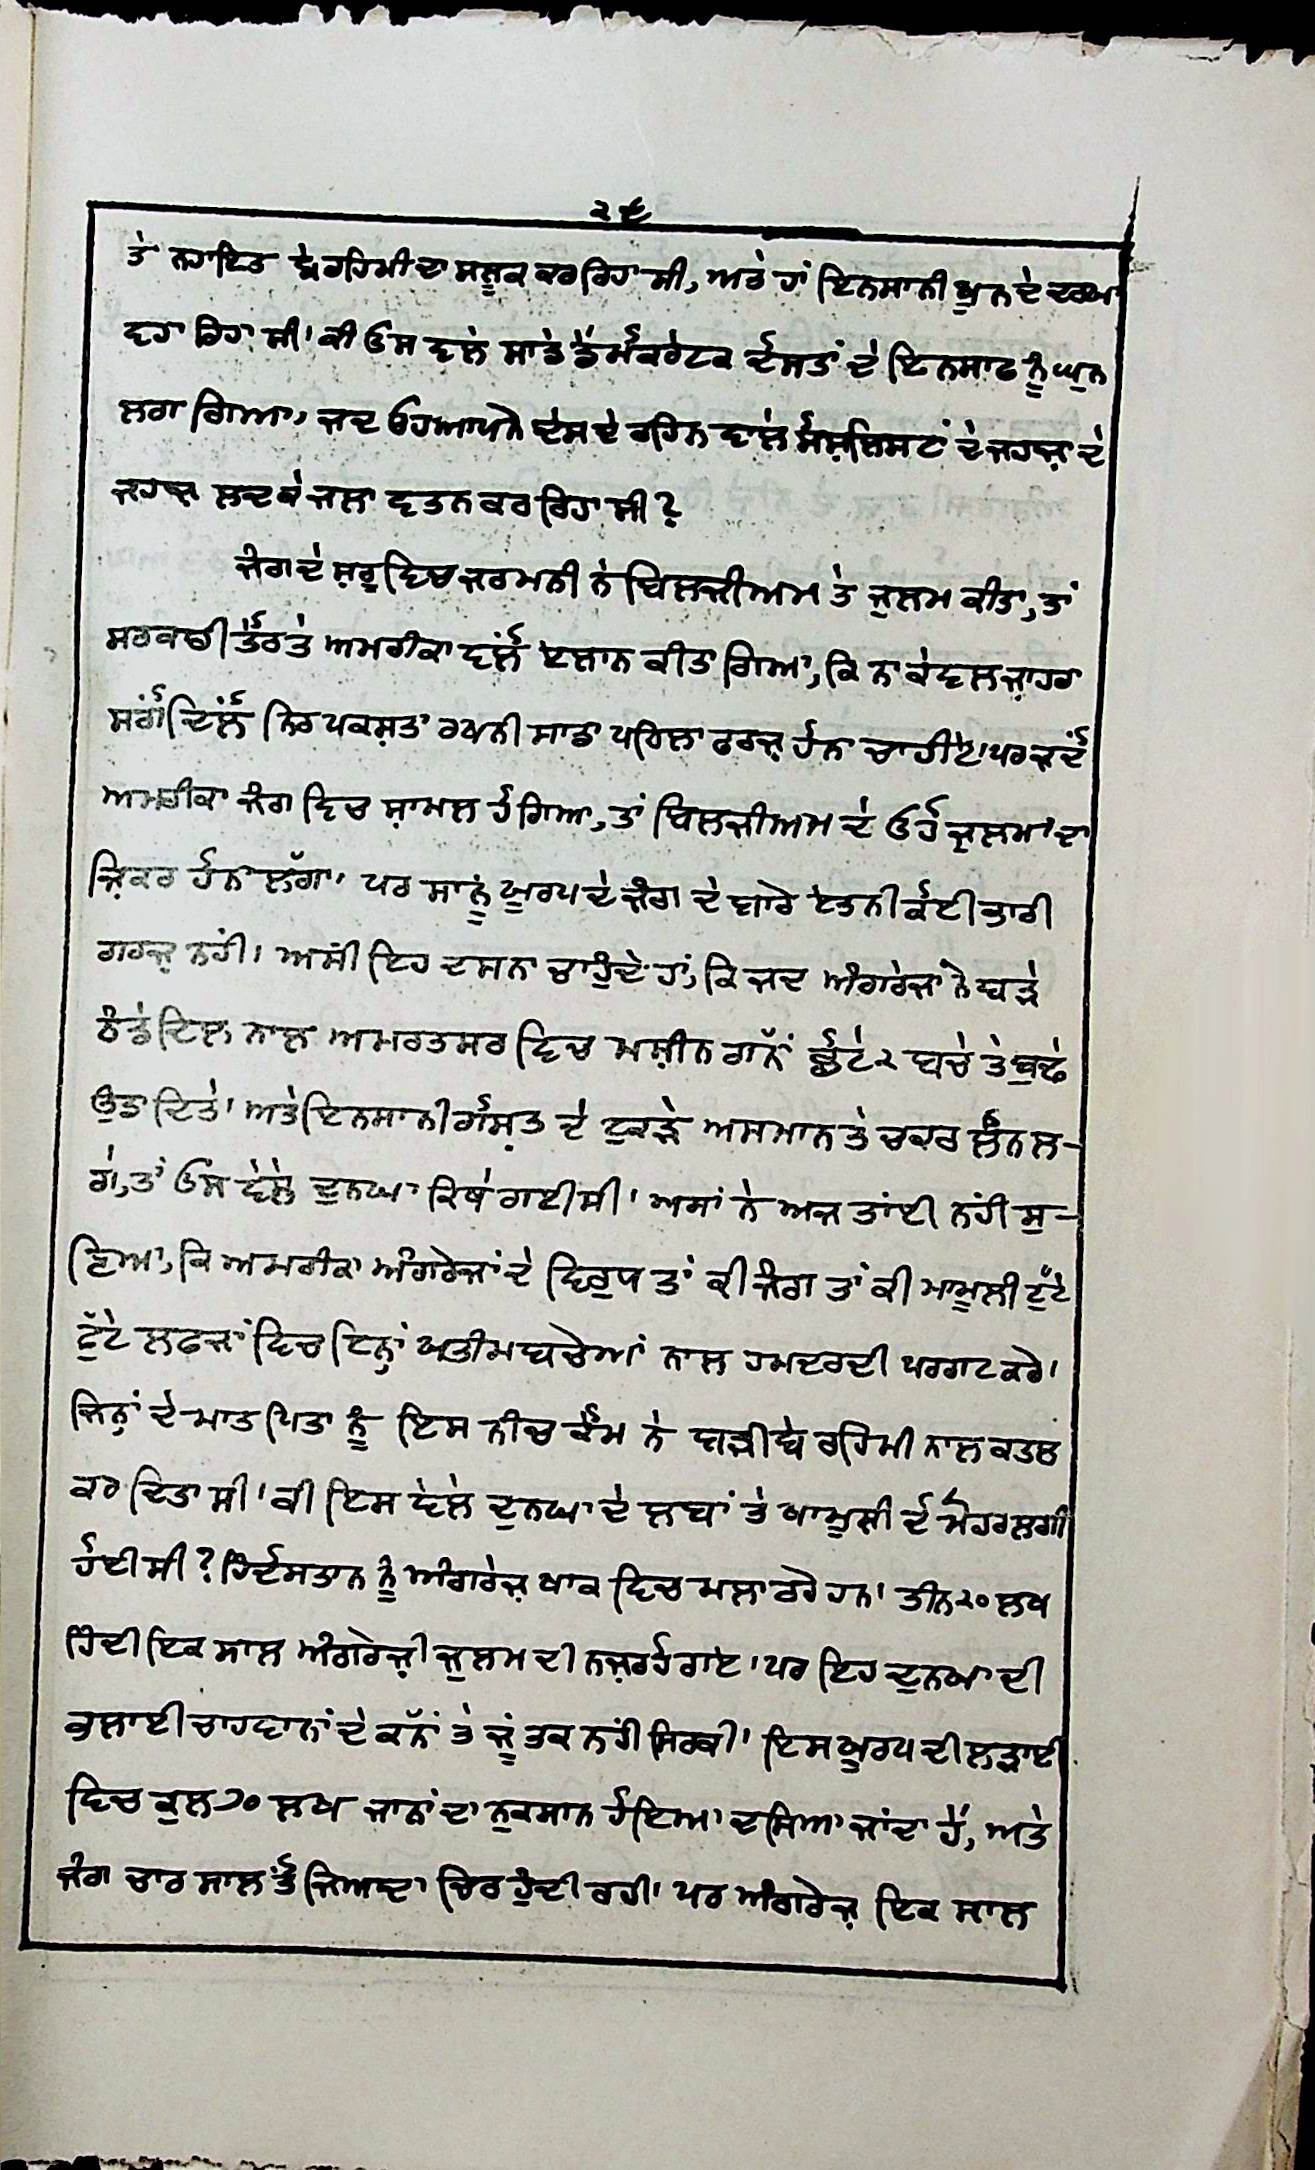 ੨੯
ਤੇ ਨਹਾਇਤ ਬੇਰਹਿਮੀ ਦਾ ਸਲੂਕ ਕਰ ਰਿਹਾ ਸੀ, ਅਤੇ ਹਾਂ ਇਨਸਾਨੀ ਖੂਨ ਦੇ ਦਰਯਾ
ਵਹਾ ਰਿਹਾ ਸੀ। ਕੀ ਓਸ ਵਲੇ ਸਾਡੇ ਡੈਮੋਕਰੇਟਕ ਦੋਸਤਾਂ ਦੇ ਇਨਸਾਫ ਨੂੰ ਘੁਨ
ਲਗ ਗਿਆ, ਜਦ ਓਹ ਆਪਨੇ ਦੇਸ ਦੇ ਰਹਿਨ ਵਾਲੇ ਸੋਸ਼ਲਿਸਟਾਂ ਦੇ ਜਹਾਜ਼ ਦੇ
ਜਹਾਜ਼ ਲਦ ਕੇ ਜਲਾ ਵਤਨ ਕਰ ਰਿਹਾ ਸੀ?
ਜੰਗ ਦੇ ਸ਼ੁਰੂ ਵਿਚ ਜਰਮਨੀ ਨੇ ਬਿਲਜੀਅਮ ਤੇ ਜੁਲਮ ਕੀਤਾ, ਤਾਂ
ਸਰਕਾਰੀ ਤੌਰ ਤੇ ਅਮਰੀਕਾ ਵਲੋਂ ਏਲਾਨ ਕੀਤਾ ਗਿਆ, ਕਿ ਨਾ ਕੇਵਲ ਜ਼ਾਹਰਾ
ਸਗੋਂ ਦਿਲੋਂ ਨਿਰਪਕਸ਼ਤਾ ਰਖਨੀ ਸਾਡਾ ਪਹਿਲਾ ਫਰਜ਼ ਹੋਨਾ ਚਾਹੀਏ। ਪਰ ਜਦੋਂ
ਅਮਰੀਕਾ ਜੰਗ ਵਿਚ ਸ਼ਾਮਲ ਹੋ ਗਿਆ, ਤਾਂ ਬਿਲਜੀਅਮ ਦੇ ਓਹੋ ਜੁਲਮਾਂ ਦਾ
ਜ਼ਿਕਰ ਹੋਨ ਲੱਗਾ। ਪਰ ਸਾਨੂੰ ਯੂਰਪ ਦੇ ਜੰਗ ਦੇ ਬਾਰੇ ਏਤਨੀ ਕੋਈ ਭਾਰੀ
ਗਰਜ਼ ਨਹੀਂ। ਅਸੀਂ ਇਹ ਦਸਨਾ ਚਾਹੁੰਦੇ ਹਾਂ, ਕਿ ਜਦ ਅੰਗਰੇਜਾਂ ਨੇ ਬੜੇ
ਠੰਡੇ ਦਿਲ ਨਾਲ ਅਮਰਤਸਰ ਵਿਚ ਮਸ਼ੀਨ ਗੱਨਾਂ ਛੋਟੇ ੨ ਬਚੇ ਤੇ ਬੁਢੇ
ਉਡਾ ਦਿਤੇ। ਅਤੇ ਇਨਸਾਨੀ ਗੋਸ਼ਤ ਦੇ ਟੁਕੜੇ ਅਸਮਾਨ ਤੇ ਚਕਰ ਲੌਨ ਲ-
ਗੇ, ਤਾਂ ਓਸ ਵੇਲੇ ਦੁਨਯਾ ਕਿਥੇ ਗਈ ਸੀ। ਅਸਾਂ ਨੇ ਅਜ ਤਾਂਈ ਨਹੀਂ ਸੁ-
ਣਿਆ, ਕਿ ਅਮਰੀਕਾ ਅੰਗਰੇਜਾਂ ਦੇ ਵਿਰੁਧ ਤਾਂ ਕੀ ਜੰਗ ਤਾਂ ਕੀ ਮਾਮੂਲੀ ਟੁੱਟੇ
ਫੁੱਟੇ ਲਫਜਾਂ ਵਿਚ ਇਨ੍ਹਾਂ ਯਤੀਮ ਬਚੇਆਂ ਨਾਲ ਹਮਦਰਦੀ ਪਰਗਟ ਕਰੇ।
ਜਿਨ੍ਹਾਂ ਦੇ ਮਾਤ ਪਿਤਾ ਨੂੰ ਇਸ ਨੀਚ ਕੌਮ ਨੇ ਬੜੀ ਬੇਰਹਿਮੀ ਨਾਲ ਕਤਲ
ਕਰ ਦਿਤਾ ਸੀ। ਕੀ ਇਸ ਵੇਲੇ ਦੁਨਯਾ ਦੇ ਲਬਾਂ ਤੇ ਖਾਮੁਸ਼ੀ ਦੇ ਮੋਹਰ ਲਗੀ
ਹੋਈ ਸੀ? ਹਿੰਦੋਸਤਾਨ ਨੂੰ ਅੰਗਰੇਜ਼ ਖਾਕ ਵਿਚ ਮਲਾ ਰਹੇ ਹਨ। ਤੀਨ ੨੦ ਲਖ
ਹਿੰਦੀ ਇਕ ਸਾਲ ਅੰਗਰੇਜ਼ੀ ਜੁਲਮ ਦੀ ਨਜ਼ਰ ਹੋ ਗਏ। ਪਰ ਇਹ ਦੁਨਯਾ ਦੀ
ਭਲਾਈ ਚਾਹਵਾਨਾਂ ਦੇ ਕੰਨਾਂ ਤੇ ਜੂੰ ਤਕ ਨਹੀਂ ਸਿਰਕੀ। ਇਸ ਯੂਰਪ ਦੀ ਲੜਾਈ
ਵਿਚ ਕੁਲ ੭੦ ਲਖ ਜਾਨਾਂ ਦਾ ਨੁਕਸਾਨ ਹੋਇਆ ਦਸਿਆ ਜਾਂਦਾ ਹੈ, ਅਤੇ
ਜੰਗ ਚਾਰ ਸਾਲ ਤੋਂ ਜਿਆਦਾ ਚਿਰ ਹੁੰਦੀ ਰਹੀ। ਪਰ ਅੰਗਰੇਜ਼ ਇਕ ਸਾਲ